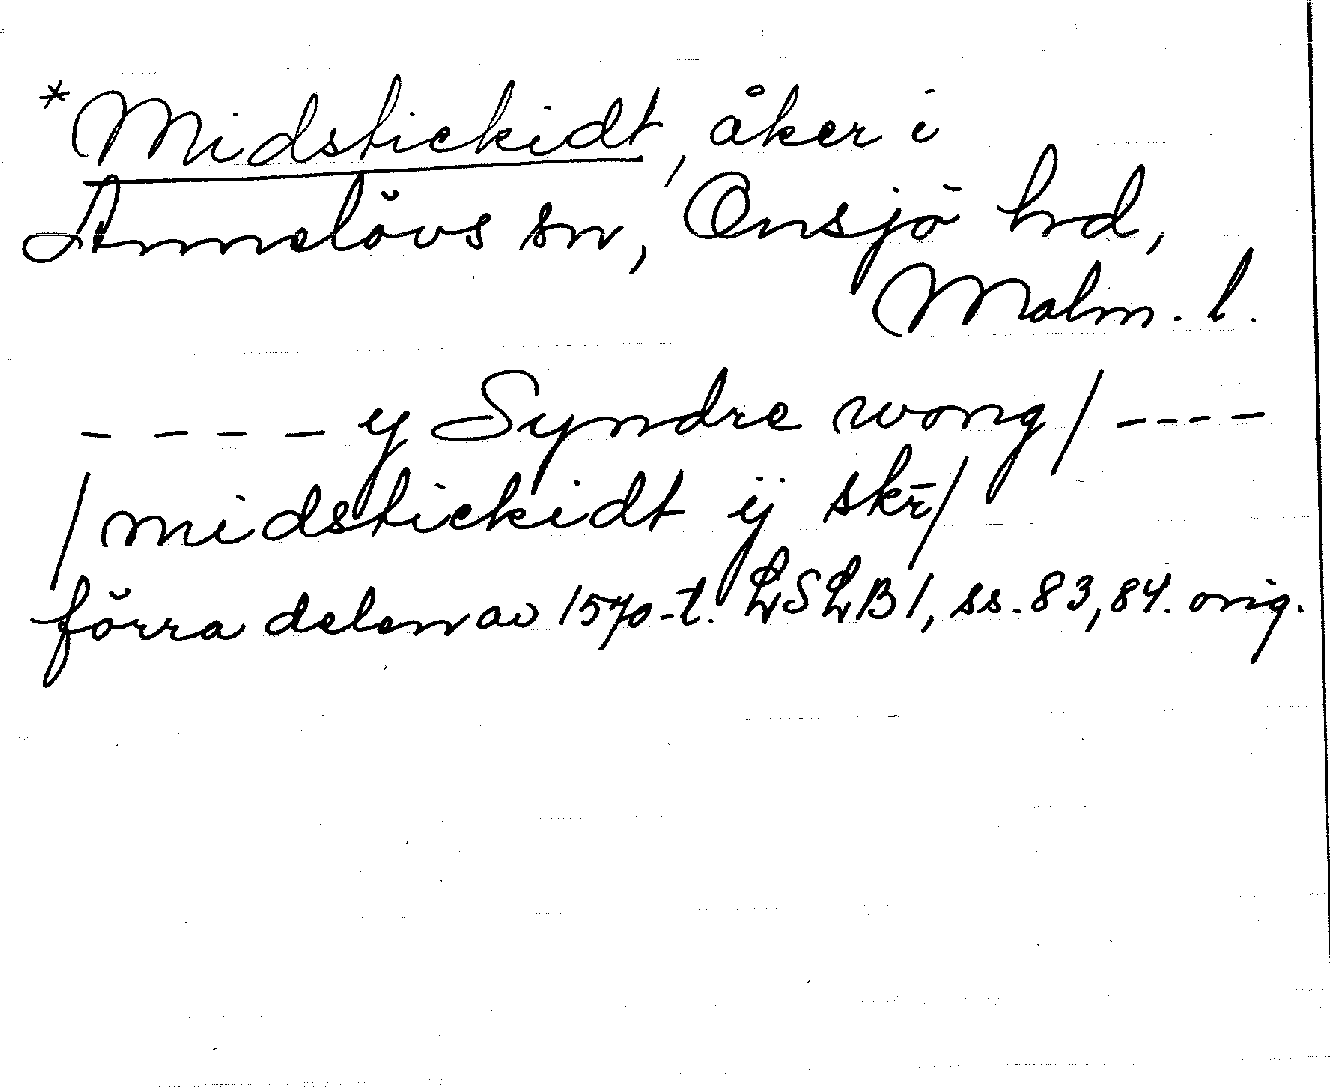 *Midstickidt, åker i
Annelövs sn, Onsjö hd,
Malm. l.
- - - - y Syndre wong / - - - -
/ midstickidt ij skr̄ /
förra delen av 1570-t. LSLB 1, ss. 83, 84. orig.